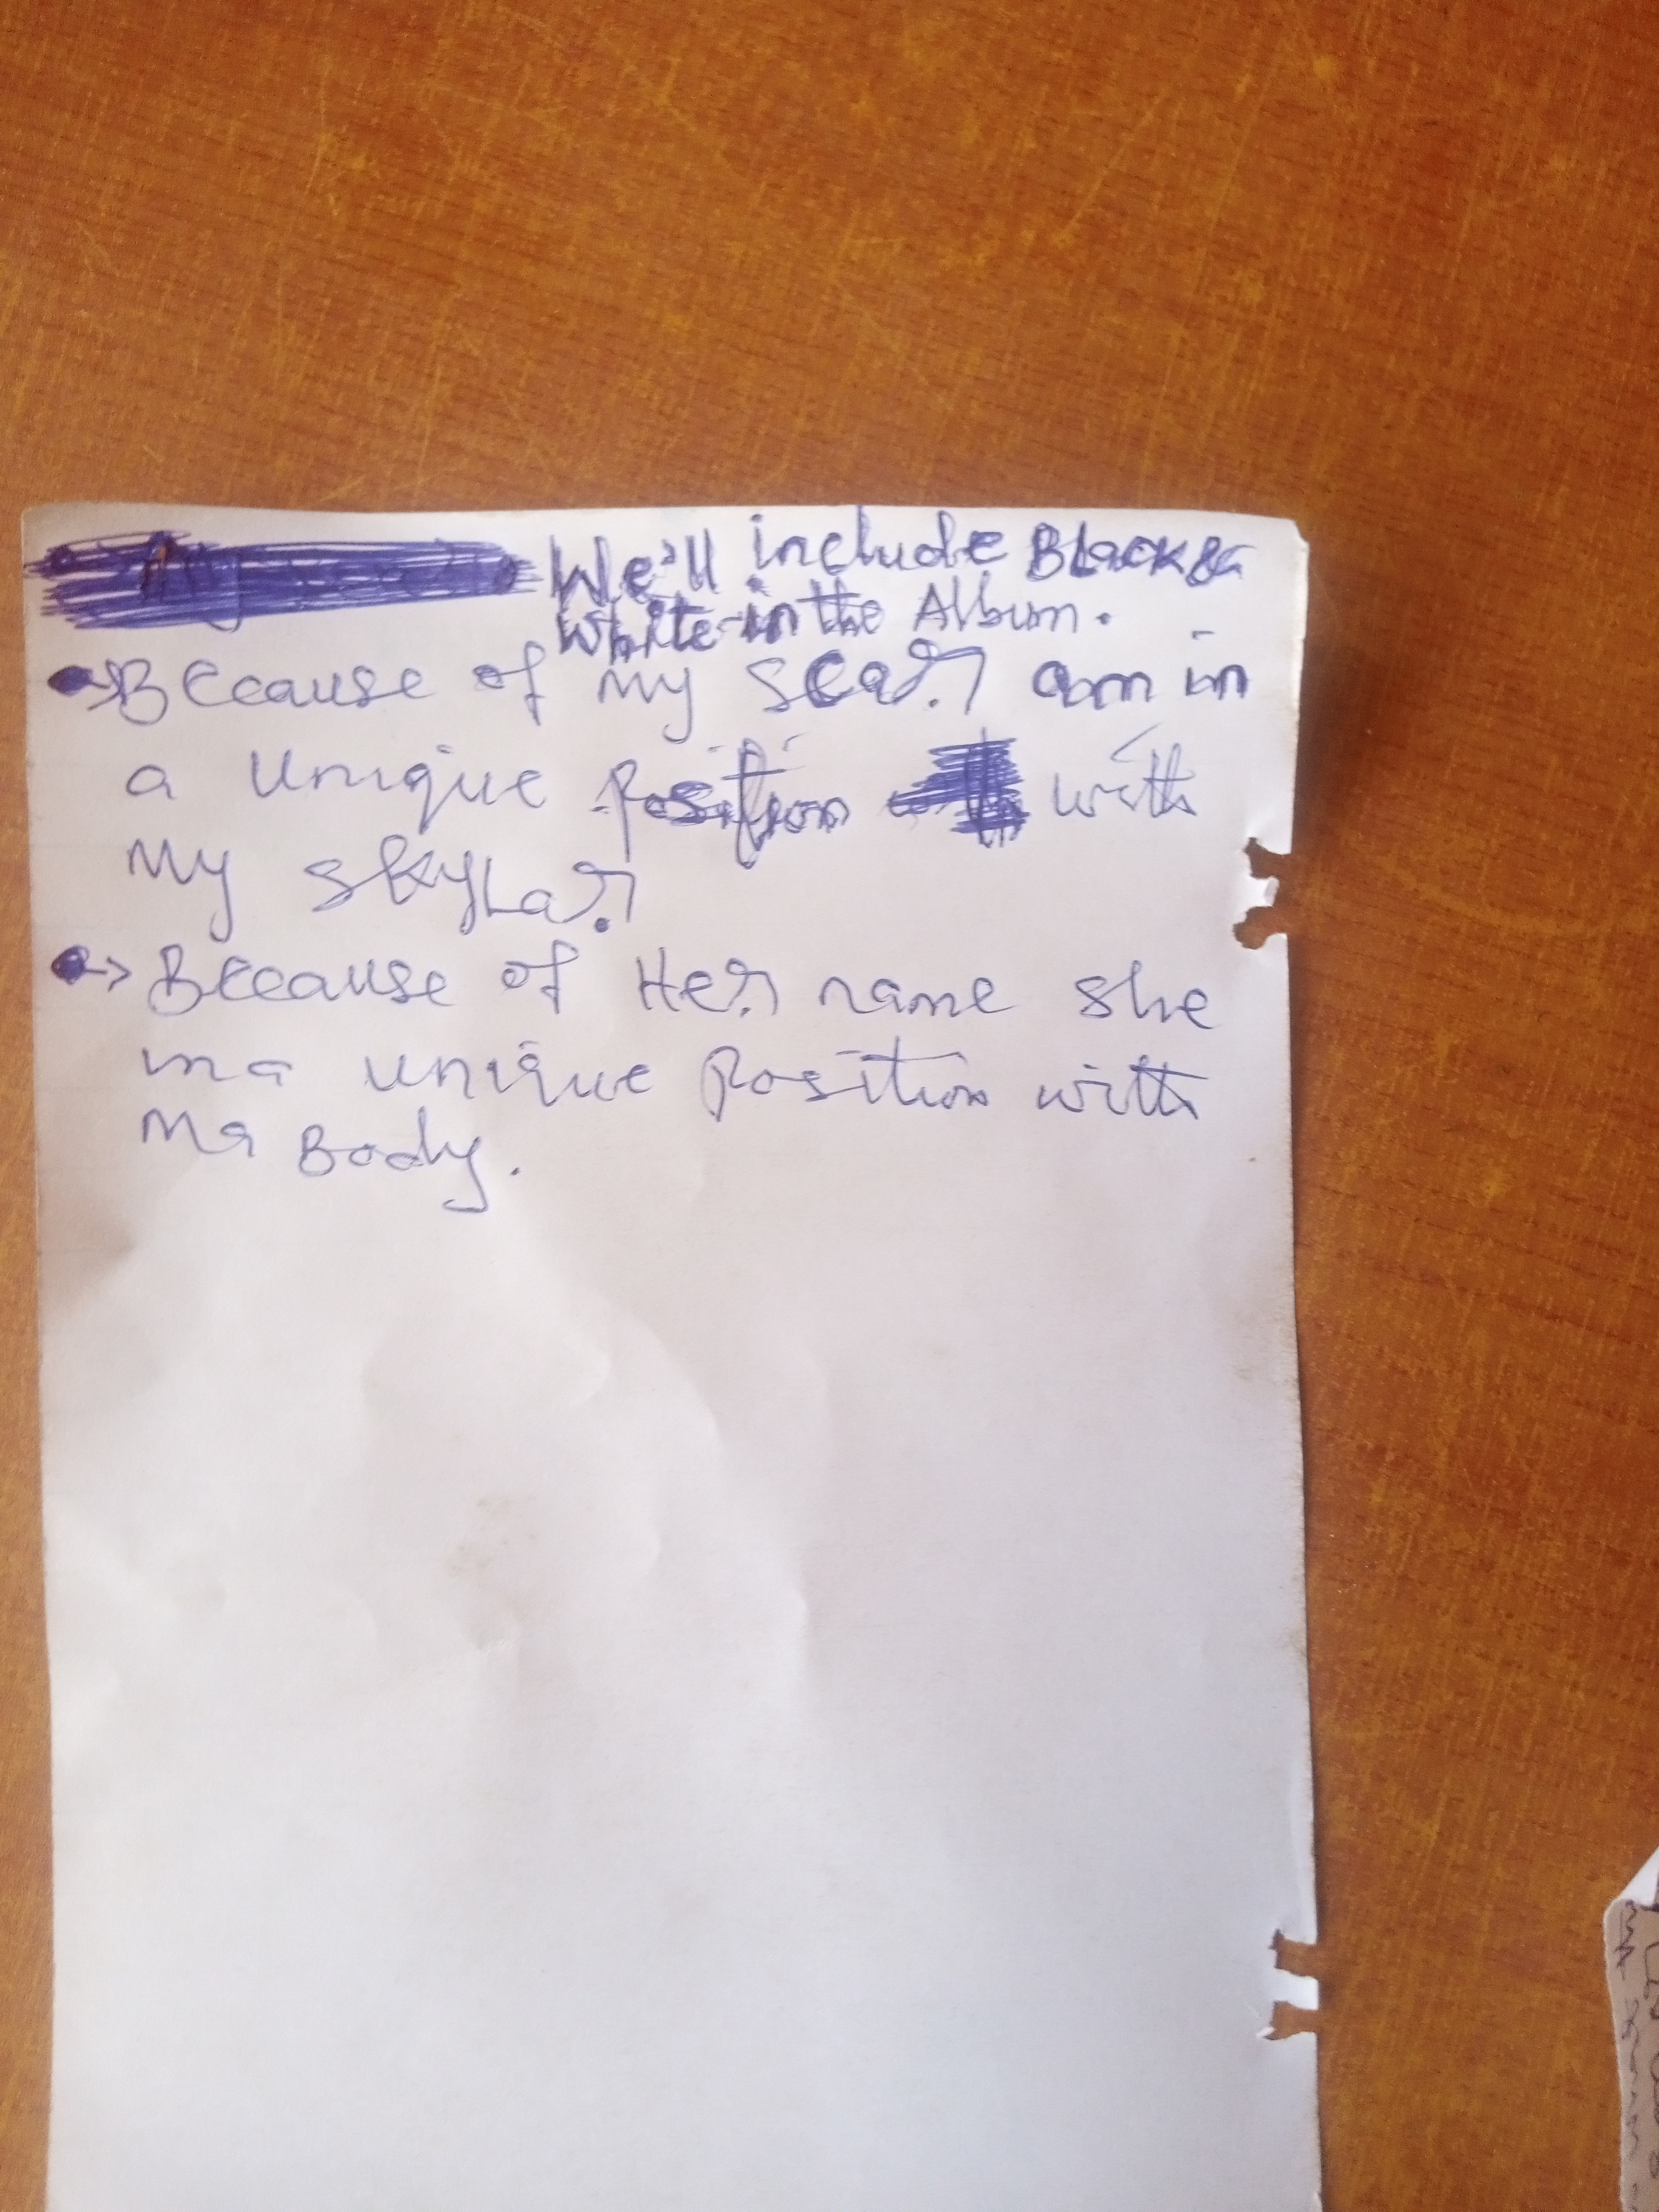 We'll include Black &
White in the Album.
Because of my scar. I am in
a unique position with
My skylar.
Because of Her name she
in a unique Position with
Ma Body.